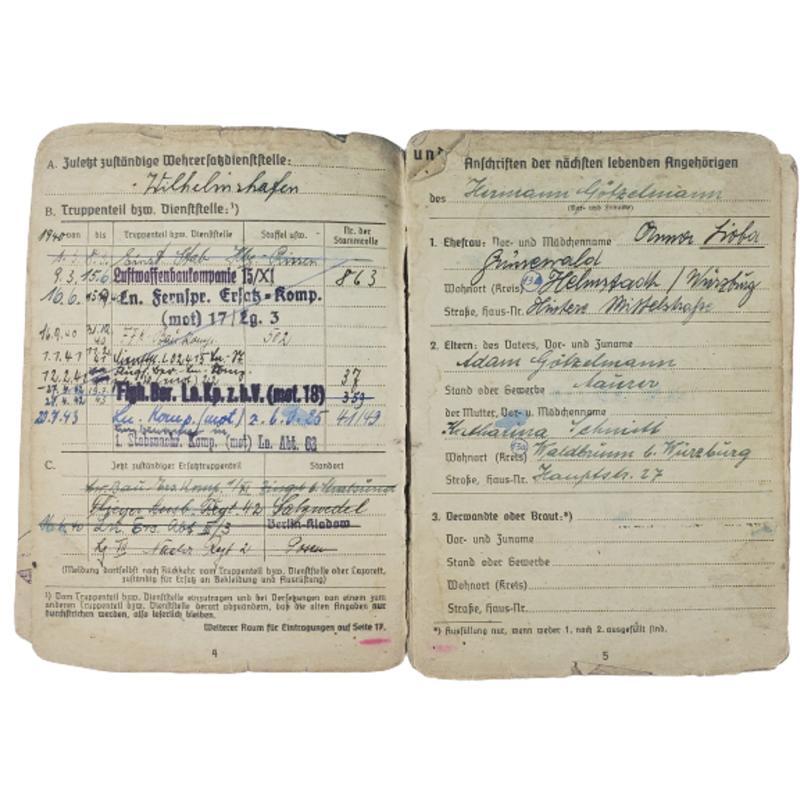 A. Zuletzt zuständige Wehrersatzdienststelle:
Wilhelmshafen
B. Truppenteil bzw. Dienststelle:¹)
1940 von bis Truppenteil bzw. Dienststelle Staffel usw. Nr. der Stammrolle
Stab
9.3. 15.6 Luftwaffenbaukompanie 15/XI 863
16.6. Ln. Fernspr. Ersatz-Komp.
(mot) 17/Lg. 3
16.9.40 31.12.40 502
1.1.41
12.2.41 37
Flgh. Ber. Ln. Kp. z.b.V. (mot. 18) 359
43 Ln. Komp. (mot) z. b. V. 25 41/49
1. Stabsnachr. Komp. (mot) Ln. Abt. 63
C. Jetzt zuständiger Ersatztruppenteil Standort
Flieger Regt. 42 Salzwedel
Ln. Ers. Abt. III/3 Berlin-Kladow
Lg Nachr Regt 2 Posen
(Meldung dortselbst nach Rückkehr vom Truppenteil bzw. Dienststelle oder Lazarett,
zuständig für Ersatz an Bekleidung und Ausrüstung)
¹) Vom Truppenteil bzw. Dienststelle einzutragen und bei Versetzungen von einem
zum anderen Truppenteil bzw. Dienststelle derart abzuändern, daß die alten Angaben nur
durchstrichen werden, also leserlich bleiben.
Weiterer Raum für Eintragungen auf Seite 17.
4
und
Anschriften der nächsten lebenden Angehörigen
des Hermann Götzelmann
(Vor- und Zuname)
1. Ehefrau: Vor- und Mädchenname Anna Lioba
Grünewald
Wohnort (Kreis) Helmstadt / Würzburg
Straße, Haus-Nr. Hintere Mittelstraße
2. Eltern: des Vaters, Vor- und Zuname
Adam Götzelmann
Stand oder Gewerbe Maurer
der Mutter, Vor- u. Mädchenname
Katharina Schmitt
Wohnort (Kreis) Waldbrunn b. Würzburg
Straße, Haus-Nr. Hauptstr. 27
3. Verwandte oder Braut:*)
Vor- und Zuname
Stand oder Gewerbe
Wohnort (Kreis)
Straße, Haus-Nr.
*) Ausfüllung nur, wenn weder 1. noch 2. ausgefüllt sind.
5